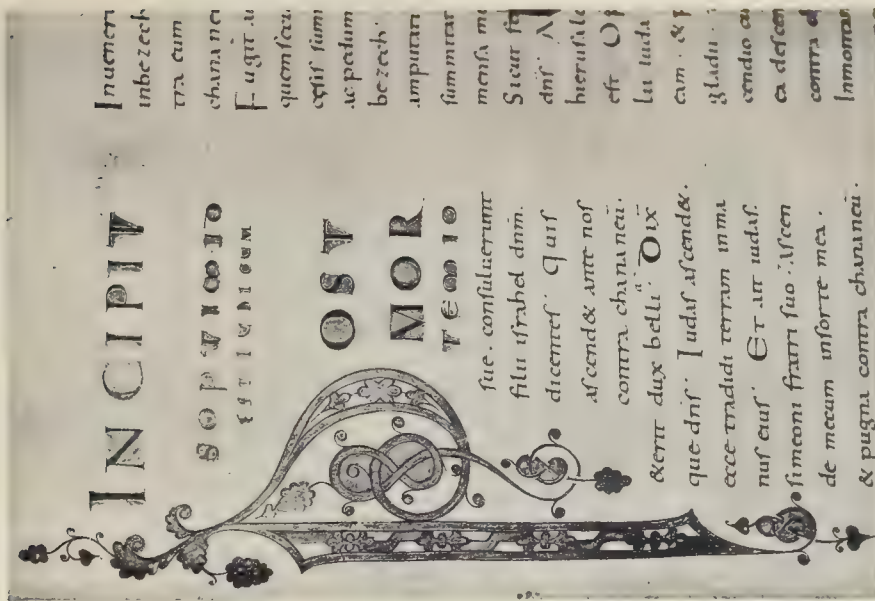 INCIPIT
POST
MOR
TEM IO
sue. consuluerunt
filii israhel dnm.
dicentes. Quis
ascend& ante nos
contra chananeū.
&erit dux belli. Dix
que dns. Iudas ascend&.
ecce tradidi terram inma
nus eius. Et ait iudas.
simeoni fratri suo. Ascen
de mecum insorte mea.
& pugna contra chananeū.
Inueneri
inbezech
tra eum
chananei
Fugit
quem secu
cesis sum
ac pedum
bezech.
amputati
summitat
mensa me
Sicut fe
dns.
hierusale
est
lii iuda
eam. & p
gladii.
cendio
ea descen
contra
Inmontan